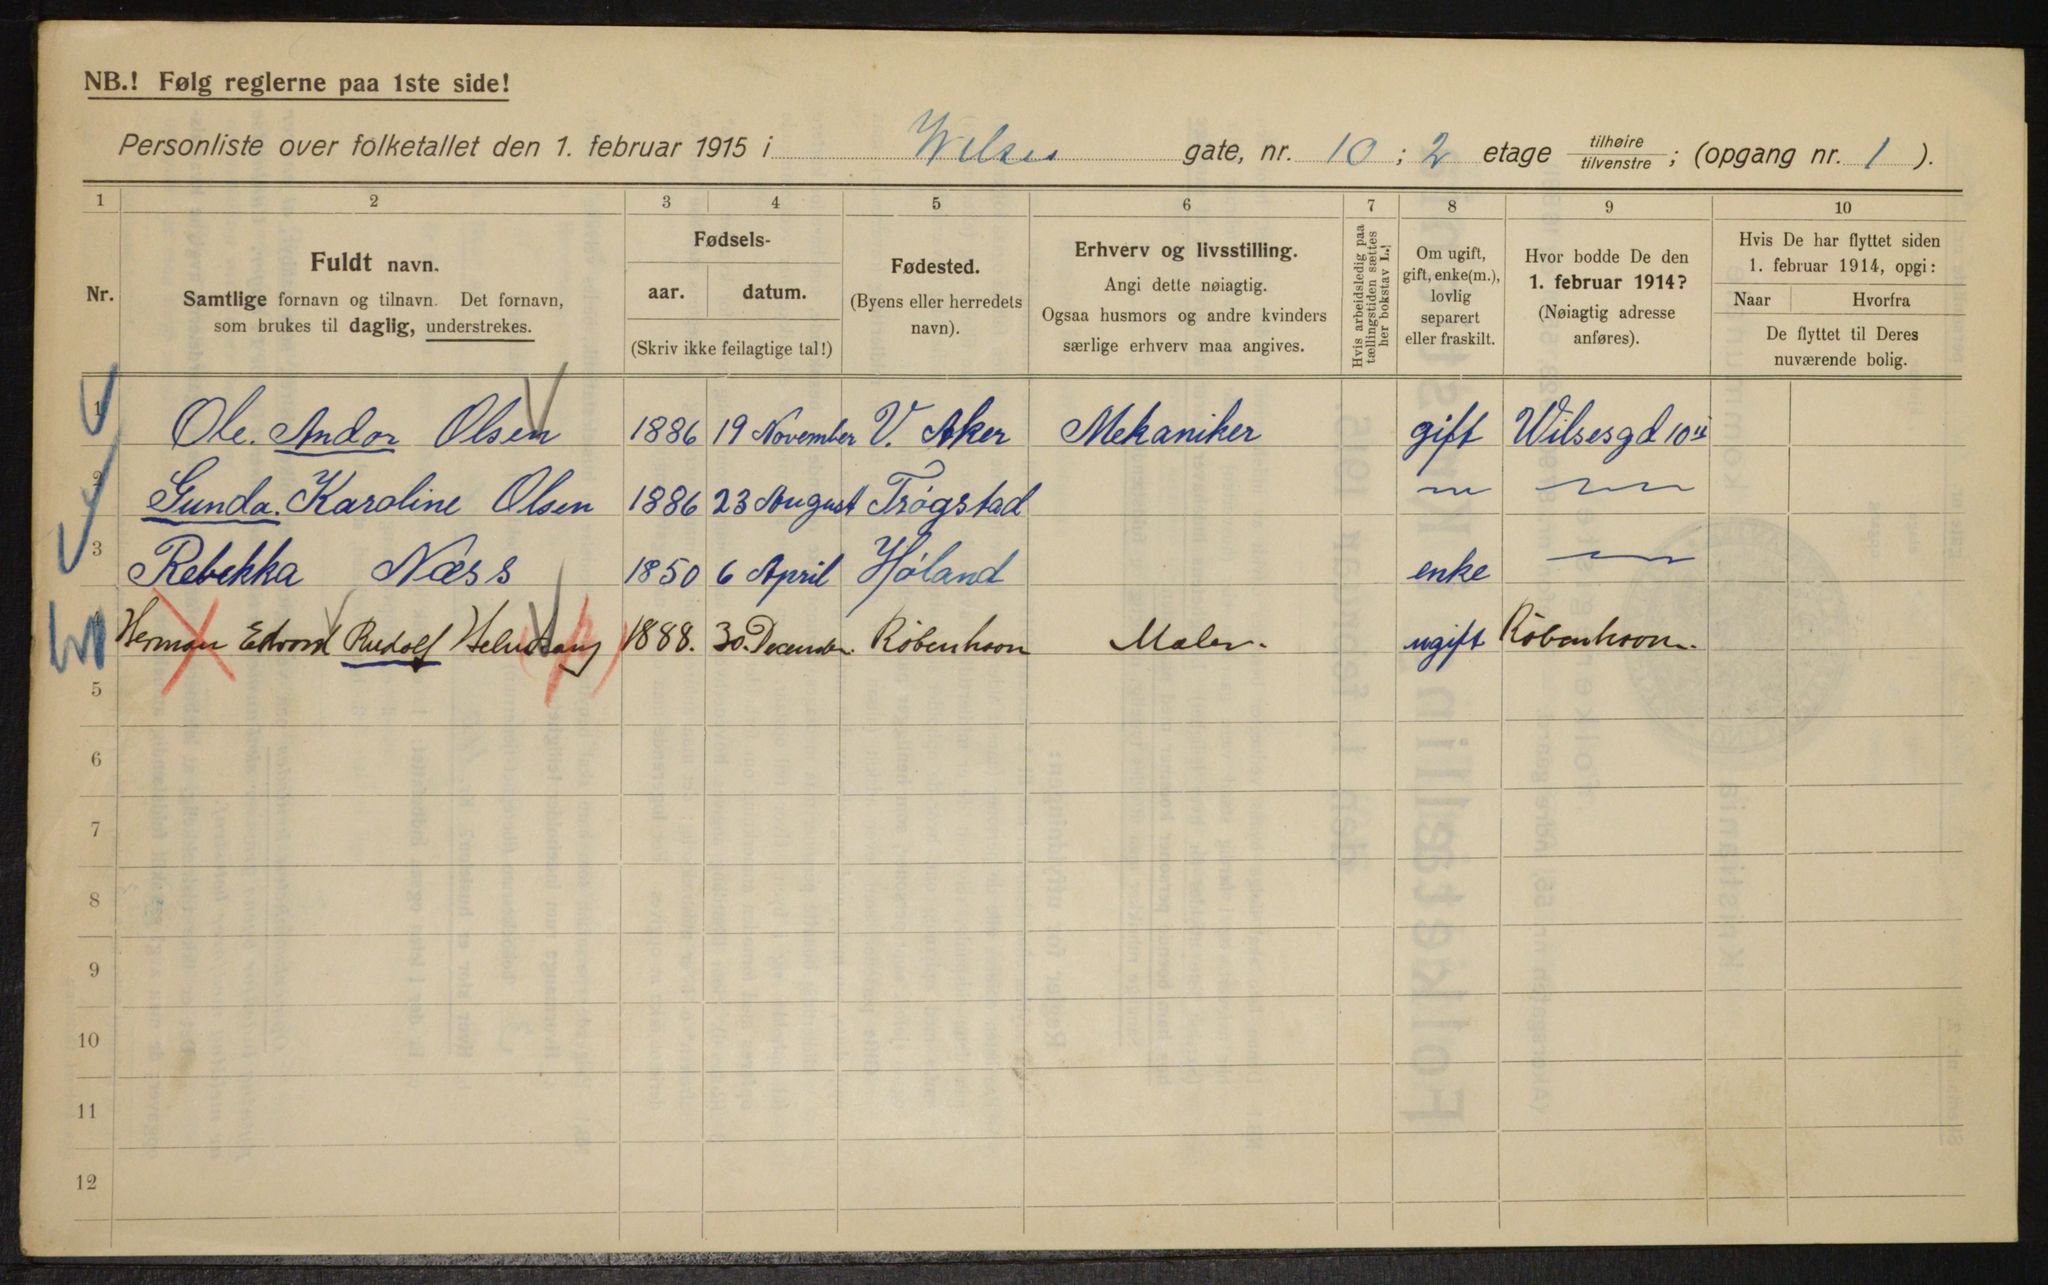 NB.! Følg reglerne paa 1ste side!
Personliste over folketallet den 1. februar 1915 i Wilses gate, nr. 10 ; 2 etage tilhøire/tilvenstre ; (opgang nr. 1 ).
1 2 3 4 5 6 7 8 9 10
Nr.
Fuldt navn.
Samtlige fornavn og tilnavn. Det fornavn,
som brukes til daglig, understrekes.
Fødsels-
aar. datum.
(Skriv ikke feilagtige tal!)
Fødested.
(Byens eller herredets
navn).
Erhverv og livsstilling.
Angi dette nøiagtig.
Ogsaa husmors og andre kvinders
særlige erhverv maa angives.
Hvis arbeidsledig paa
tællingstiden sættes
her bokstav L.!
Om ugift,
gift, enke(m.),
lovlig
separert
eller fraskilt.
Hvor bodde De den
1. februar 1914?
(Nøiagtig adresse
anføres).
Hvis De har flyttet siden
1. februar 1914, opgi:
Naar Hvorfra
De flyttet til Deres
nuværende bolig.
1 Ole. Andor Olsen 1886 19 November V. Aker Mekaniker gift Wilsesgd 10
2 Gunda. Karoline Olsen 1886 23 August Trøgstad
3 Rebekka Næss 1850 6 April Høland enke
4 Herman Edvard Rudolf 1888. 30. December. København Maler. ugift København.
5
6
7
8
9
10
11
12